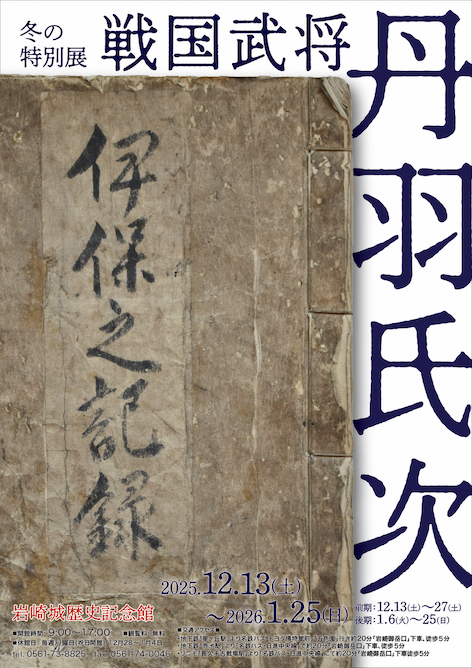 冬の
特別展
戦国武将
丹羽氏次
伊保之記録
2025.12.13(土)
～2026.1.25(日)
前期：12.13(土)～27(土)
後期：1.6(火)～25(日)
岩崎城歴史記念館
■開館時間：9:00～17:00 ■観覧料：無料
■休館日：毎週月曜日(祝日開館)、12月28日～1月4日
■tel. 0561-73-8825 ■fax. 0561-74-0046
■交通アクセス■
「岩崎御岳口」下車、徒歩5分
「岩崎御岳口」下車、徒歩5分
「岩崎御岳口」下車徒歩5分